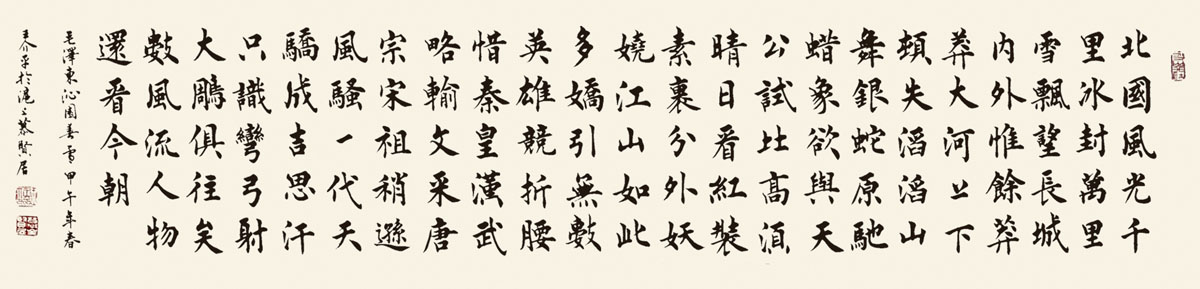 北國風光千
里冰封萬里
雪飄望長城
内外惟餘莽
莽大河上下
頓失滔滔山
舞銀蛇原馳
蜡象欲與天
公試比高須
晴日看紅裝
素裹分外妖
嬈江山如此
多嬌引無數
英雄競折腰
惜秦皇漢武
略輸文采唐
宗宋祖稍遜
風騷一代天
驕成吉思汗
只識彎弓射
大鵰俱往矣
數風流人物
還看今朝
毛澤東沁園春雪甲午年春
於滬上